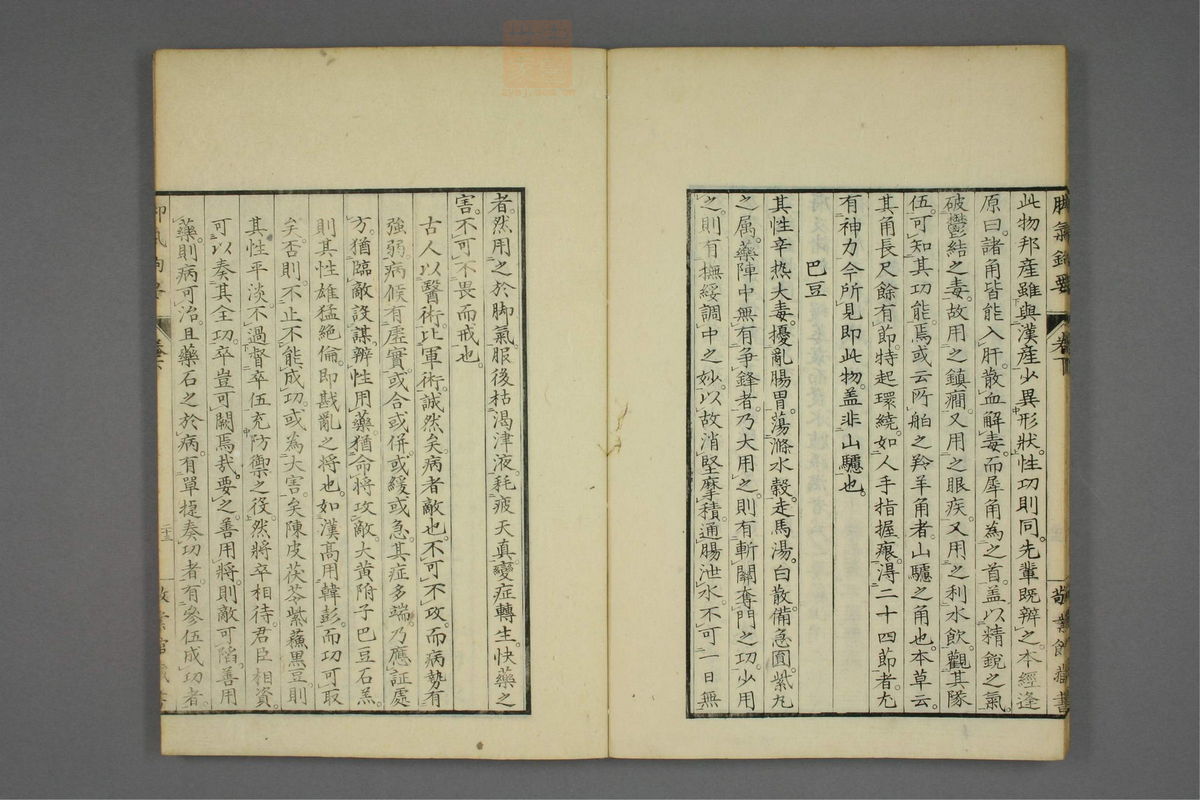 此物邦産雖與漢産少異形狀性功則同先輩既辨之本經逢
原曰諸角皆能入肝散血解毒而犀角為之首蓋以精鋭之氣
破鬱結之毒故用之鎮癎又用之眼疾又用之利水飲觀其隊
伍可知其功能焉或云所舶之羚羊角者山驢之角也本草云
其角長尺餘有節特起環繞如人手指握痕得二十四節者尤
有神力今所見即此物蓋非山驢也
巴豆
其性辛热大毒擾亂腸胃蕩滌水穀走馬湯白散備急圓紫丸
之属藥陣中無有争鋒者乃大用之則有斬關奪門之功少用
之則有撫綏調中之妙以故消堅摩積通腸泄水不可一日無
者然用之於脚氣服後枯渇津液耗疲天真變症轉生快藥之
害不可不畏而戒也
古人以醫術比軍術誠然矣病者敵也不可不攻而病勢有
強弱病候有虚實或合或併或緩或急其症多端乃應証處
方猶臨敵設謀辨性用藥猶命將攻敵大黄附子巴豆石羔
則其性雄猛絶倫即戡亂之将也如漢高用韓彭而功可取
矣否則不止不能成功或為大害矣陳皮茯苓紫蘇黒豆則
其性平淡不過督卒伍充防禦之役然將卒相待君臣相資
可以奏其全功卒豈可闕焉哉要之善用將則敵可陷善用
藥則病可治且藥石之於病有單捷奏功者有參伍成功者